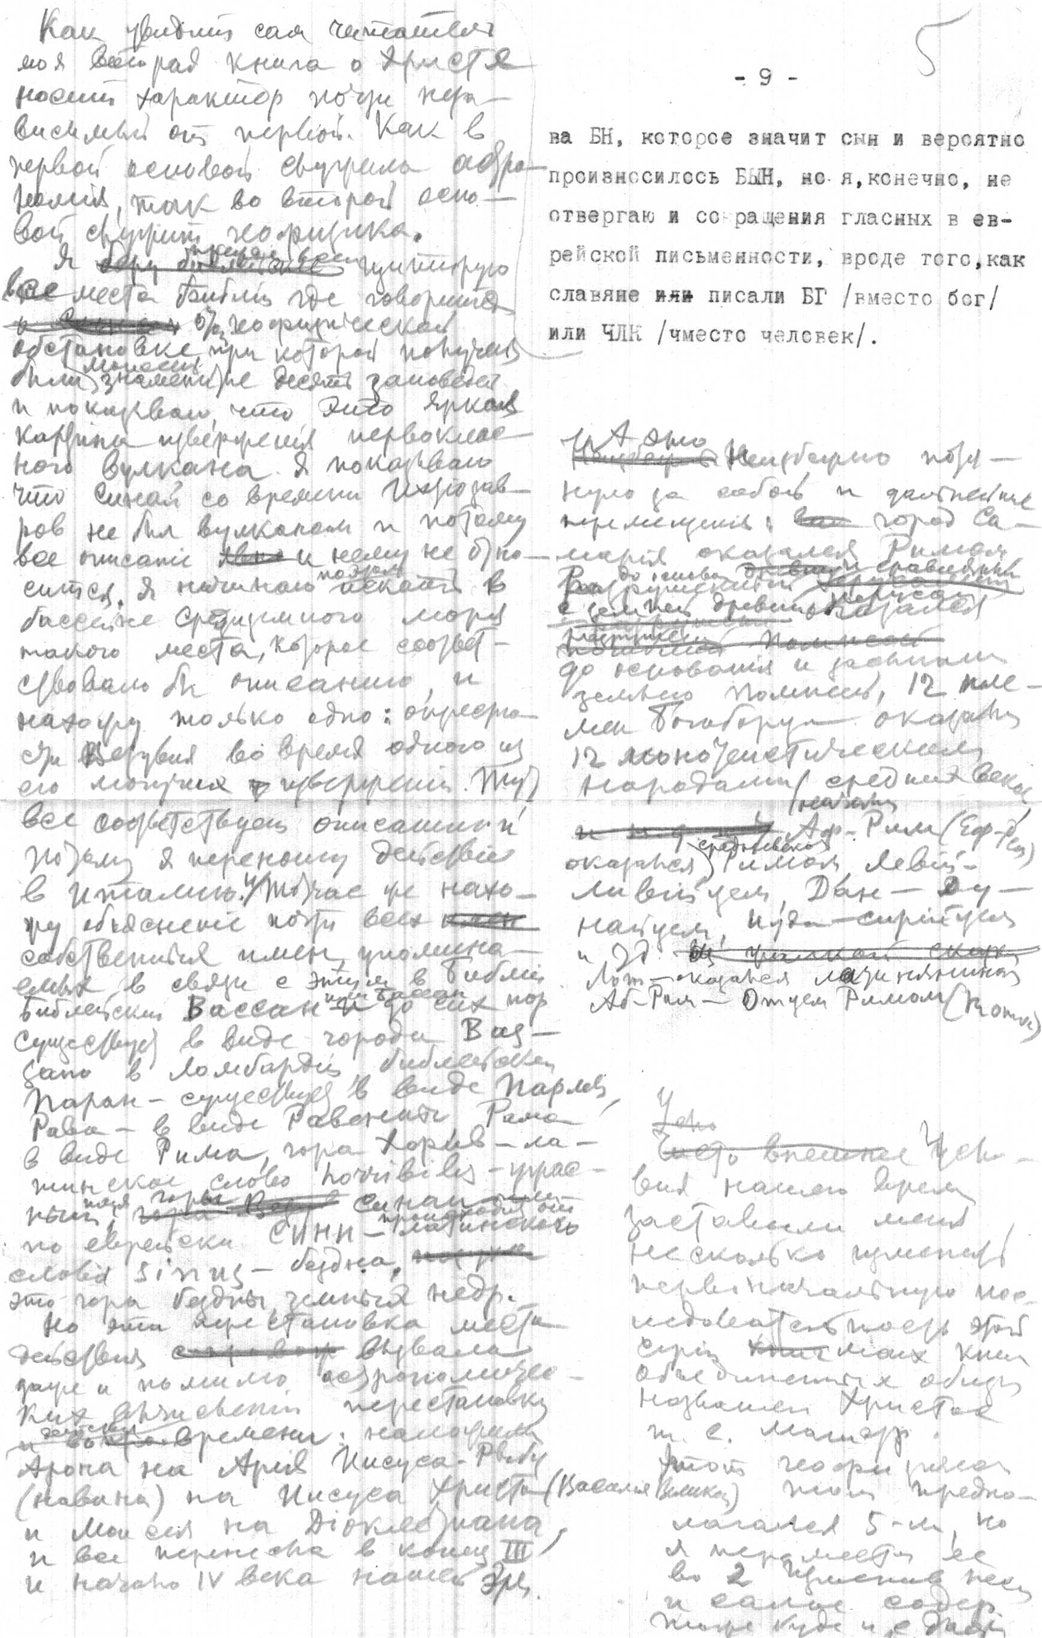 Как увидит сам читатель
моя вторая книга о Христе
носит характер почти неза-
висимый от первой. Как в
первой основой служила астро-
номия, так во второй осно-
вой служит геофизика.
Я цитирую
все места Библии где говорится
о геофизической
обстановке при которой получены
были Моисеем знаменитые десять заповедей
и показываю, что это яркая
картина извержения первоклас-
ного вулкана. Я показываю
что Синай со времени ихтиозав-
ров не был вулканом и потому
все описание к нему не отно-
сится. Я начинаю поэтому искать в
бассейне Средиземного моря
такого места, которое соответ-
ствовало бы описанию, и
нахожу только одно: окрестно-
сти Везувия во время одного из
его могучих извержений. Тут
все соответствует описанию и
потому я переношу действие
в Италию. И тотчас же нахо-
жу объяснение почти всех
собственных имен, упомина-
емых в связи с этим в Библии
Библейский Вассан или Бассан до сих пор
существует в виде города Бас-
сано в Ломбардии библейский
Паран - существует в виде Пармы,
Рава - в виде Равенны Рама
в виде Рима, гора Хорив - ла-
тинское слово horribilis - ужас-
ный,
по еврейски СИНИ - происходит от латинского
слова sinus - бездна,
это гора бездны, земных недр.
Но эта перестановка места
действия вызвала
даже и помимо астрономичес-
ких вычислений перестановку
и времени
Арона на Ария Иисуса - Рыбу
(Навина) на Иисуса Христа (Василия Великого)
и Моисея на Диоклетиана,
и все перенесла в конец III
и начало IV века нашей эры.
5
- 9 -
ва БН, которое значит сын и вероятно
произносилось БЫН, но я, конечно, не
отвергаю и сокращения гласных в ев-
рейской письменности, вроде того, как
славяне или писали БГ /вместо бог/
или ЧЛК /чместо человек/.
А это неизбежно потя-
нуло за собой и дальнейшие
перемещения: город Са-
мария оказался Римом
до основания и засыпан
землею Помпеей, 12 пле-
мен Богоборца оказались
12 монотеистическими
народами средних веков,
оказался средневековым Римом Левий -
Ливийцем, Дан - Ду-
найцем, Иуда - сирийцем
и т.д.
Лот - оказался латинянином
Аб-Рам - Отцем Римом
Усло-
вия нашего времени
заставили меня
несколько изменить
первоначальную пос-
ледовательность этой
серии моих книг
объединенных общим
названием Христос
т. е. Магистр.
Этот геофизический
том предпо-
лагался 5-м, но
я переместил ее
во 2 изменив несколько
и самое содер-